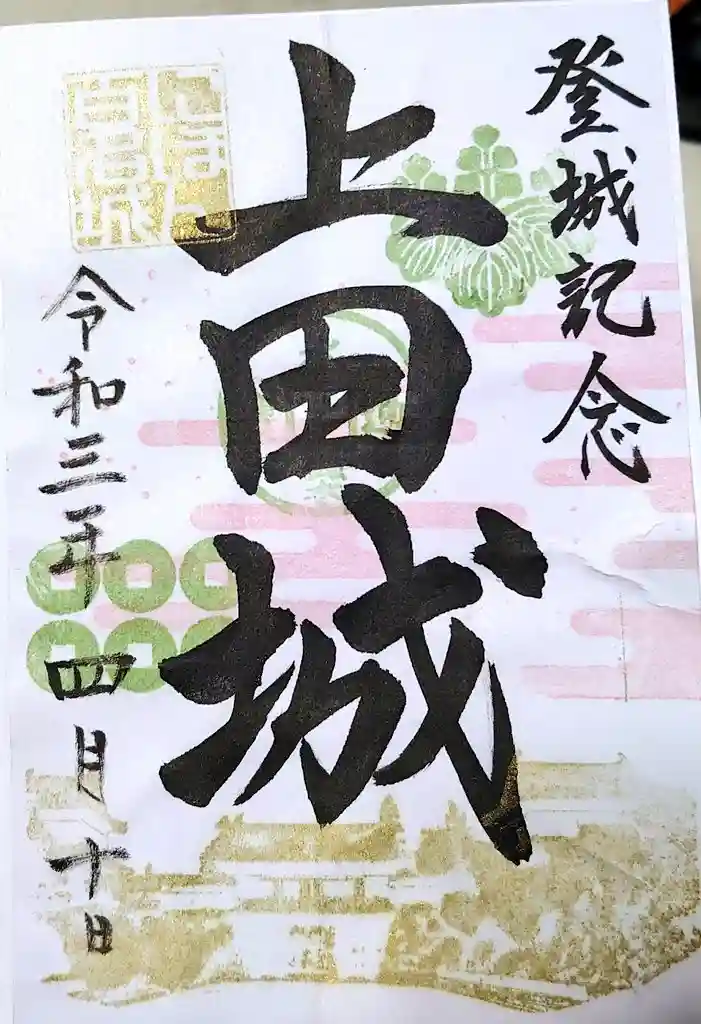 登城記念
上田城
令和三年四月十日